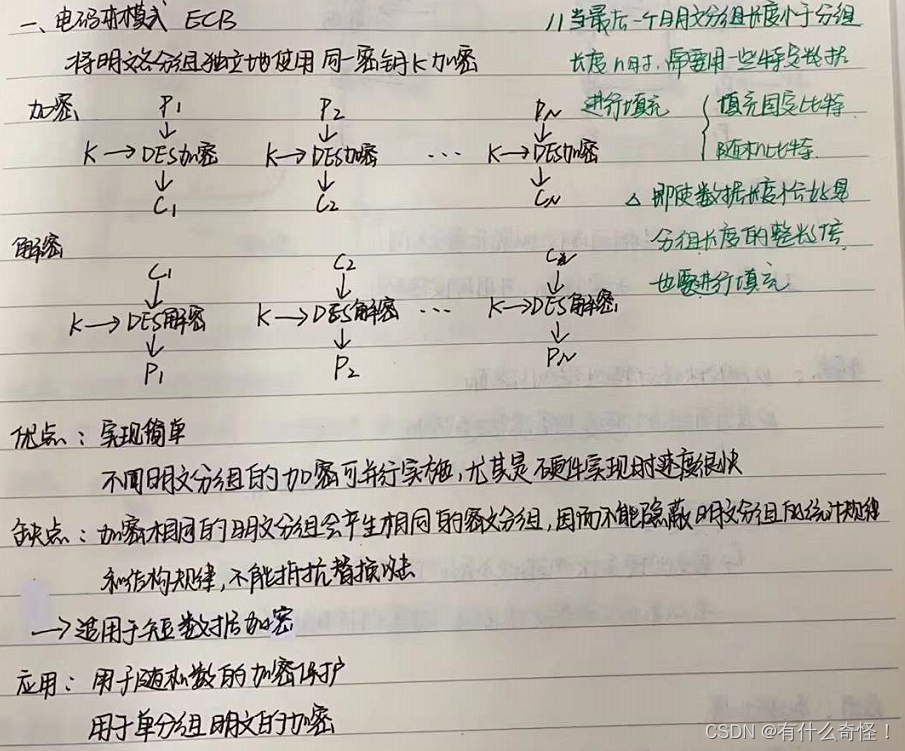 一、电码本模式 ECB
将明文各分组独立地使用同一密钥K加密
//当最后一个明文分组长度小于分组
长度n时,需要用一些特定数据
进行填充 { 填充固定比特
随机比特
△ 即使数据长度恰好是
分组长度的整数倍
也要进行填充
加密 P1 P2 PN
K→DES加密 K→DES加密 ··· K→DES加密
C1 C2 CN
解密
C1 C2 CN
K→DES解密 K→DES解密 ··· K→DES解密
P1 P2 PN
优点:实现简单
不同明文分组的加密可并行实施,尤其是硬件实现时速度很快
缺点:加密相同的明文分组会产生相同的密文分组,因而不能隐蔽明文分组的统计规律
和结构规律,不能抵抗替换攻击
→适用于短数据加密
应用:用于随机数的加密保护
用于单分组明文的加密
CSDN @有什么奇怪!